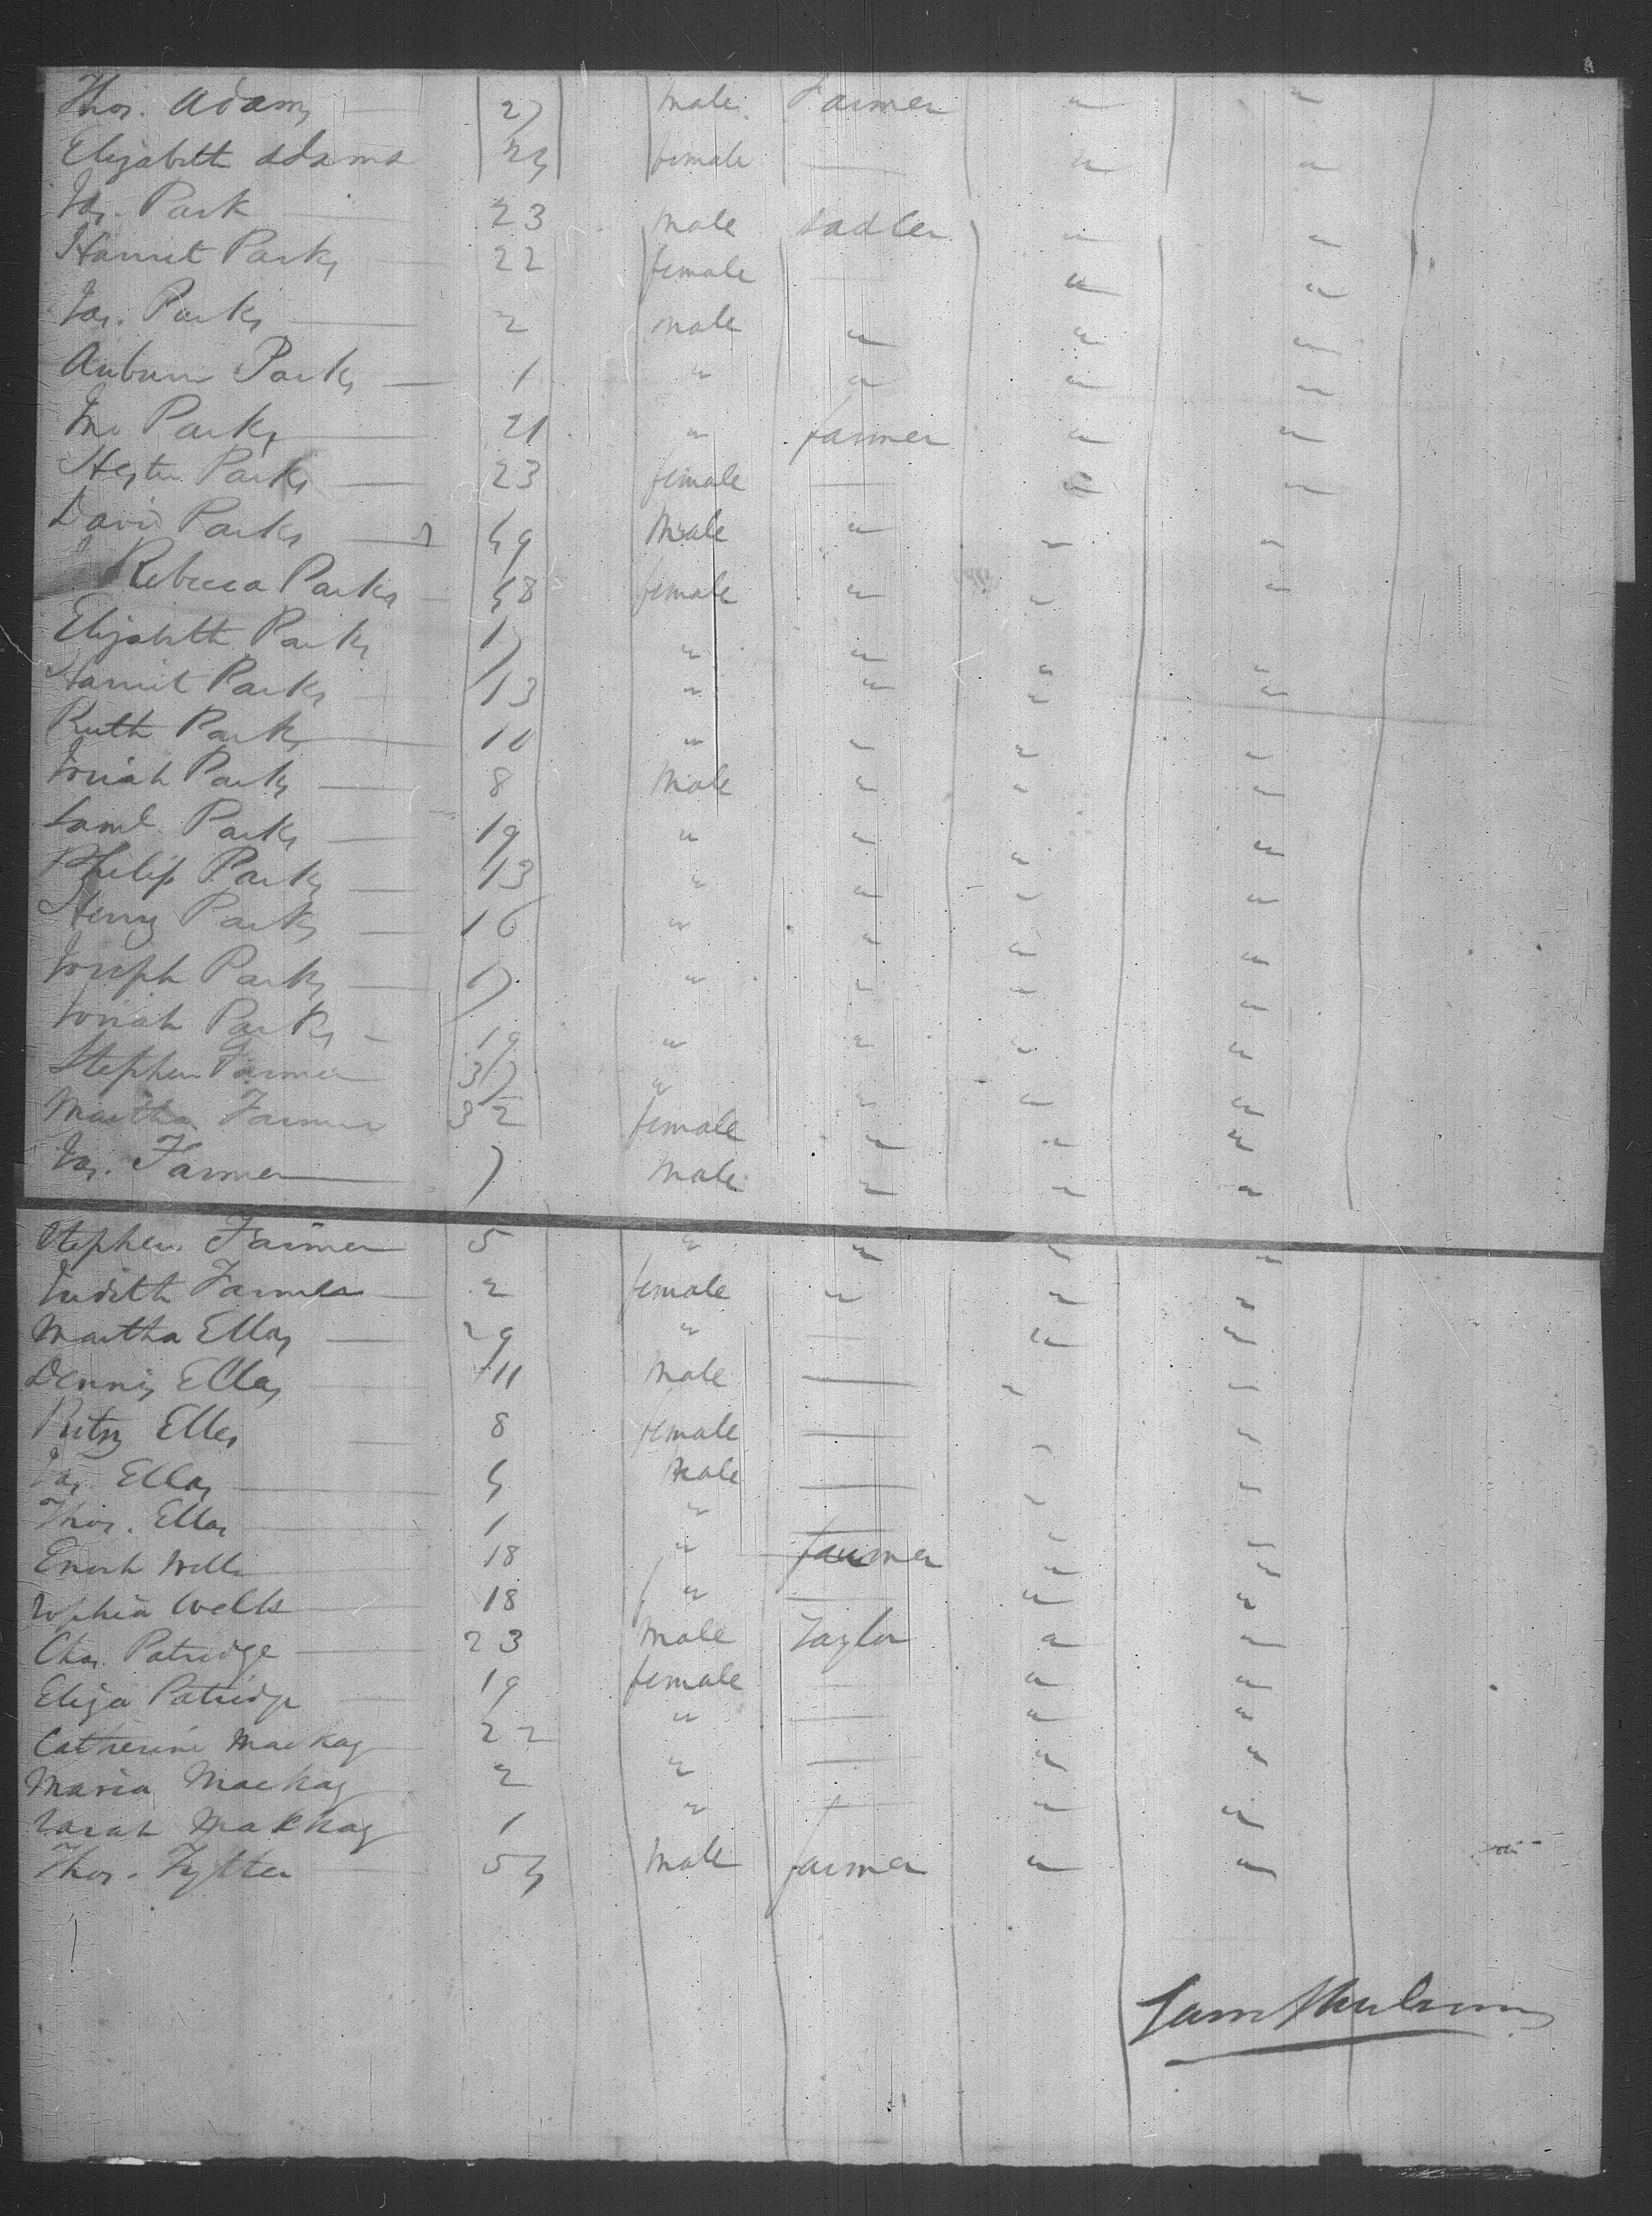 Thos. Adams 27 male Farmer " "
Elizabeth Adams 24 female — " "
Jas. Park — 23 male Sadler " "
Harriet Parks — 22 female — " "
Jas. Parks — 2 male " " "
Auburn Parks — 1 " " " "
Wm Parks — 21 " farmer " "
Hester Parks — 23 female — " "
David Parks — 49 Male " " "
Rebecca Parks — 48 female " " "
Elizabeth Parks 17 " " " "
Harriet Parks — 13 " " " "
Ruth Parks — 10 " " " "
Josiah Parks — 8 Male " " "
Saml. Parks — 19 " " " "
Philip Parks — 13 " " " "
Henry Parks — 16 " " " "
Joseph Parks — 17 " " " "
Josiah Parks — 19 " " " "
Stephen Farmer 37 " " " "
Martha Farmer 32 female " " "
Jas. Farmer — 7 Male " " "
Stephen Farmer 5 " " " "
Judith Farmer — 2 female " " "
Martha Ellas — 29 " — " "
Dennis Ellas — 11 Male — " "
Ellas — 8 female — " "
Jas Ellas — 4 Male — " "
Thos. Ellas — 1 " — " "
Enoch Wells — 18 " farmer " "
Sophia Wells — 18 " — " "
Chas. Patridge — 23 Male Taylor " "
Eliza Patridge — 19 female — " "
Catherine Mackay — 22 " — " "
Maria Mackay 2 " — " "
Sarah Makkay 1 " — " "
Thos. — 54 Male farmer " "